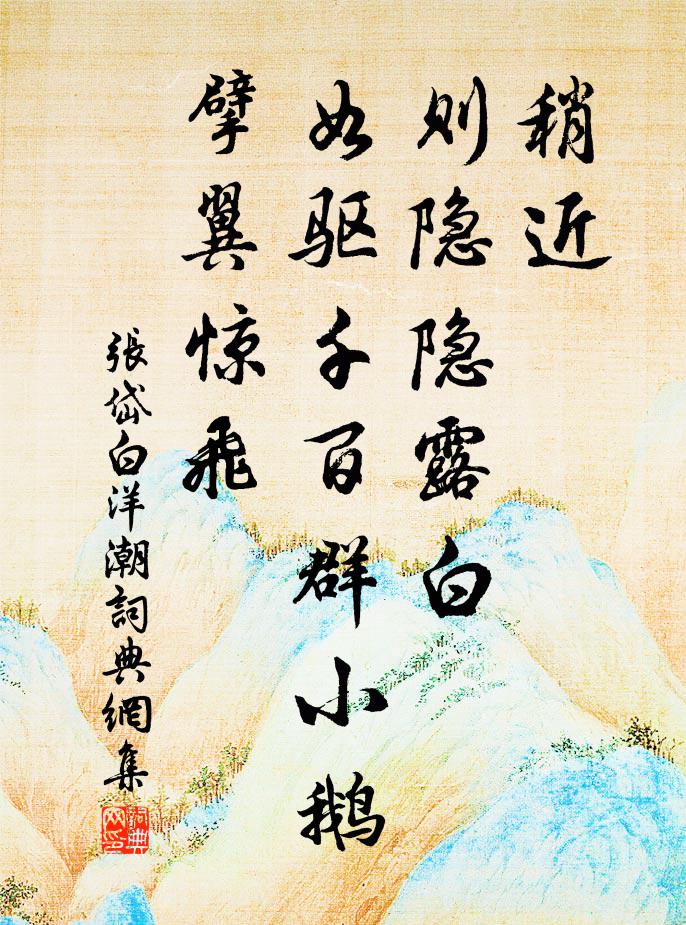 稍近
则隐隐露白
如驱千百群小鹅
擘翼惊飞
張岱白洋潮詞典網集
詞典
网印